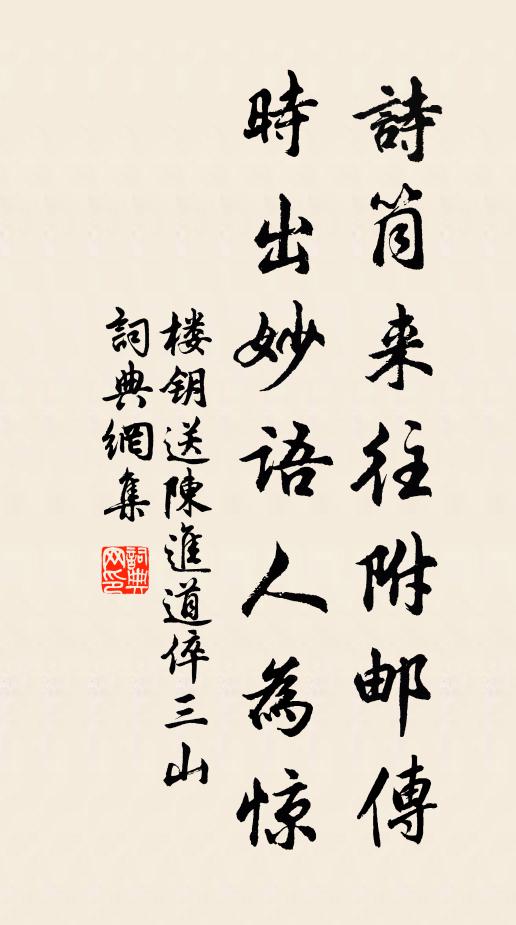 詩筒来往附邮傳
時出妙語人為惊
楼钥送陳進道倅三山
詞典網集
詞典网印